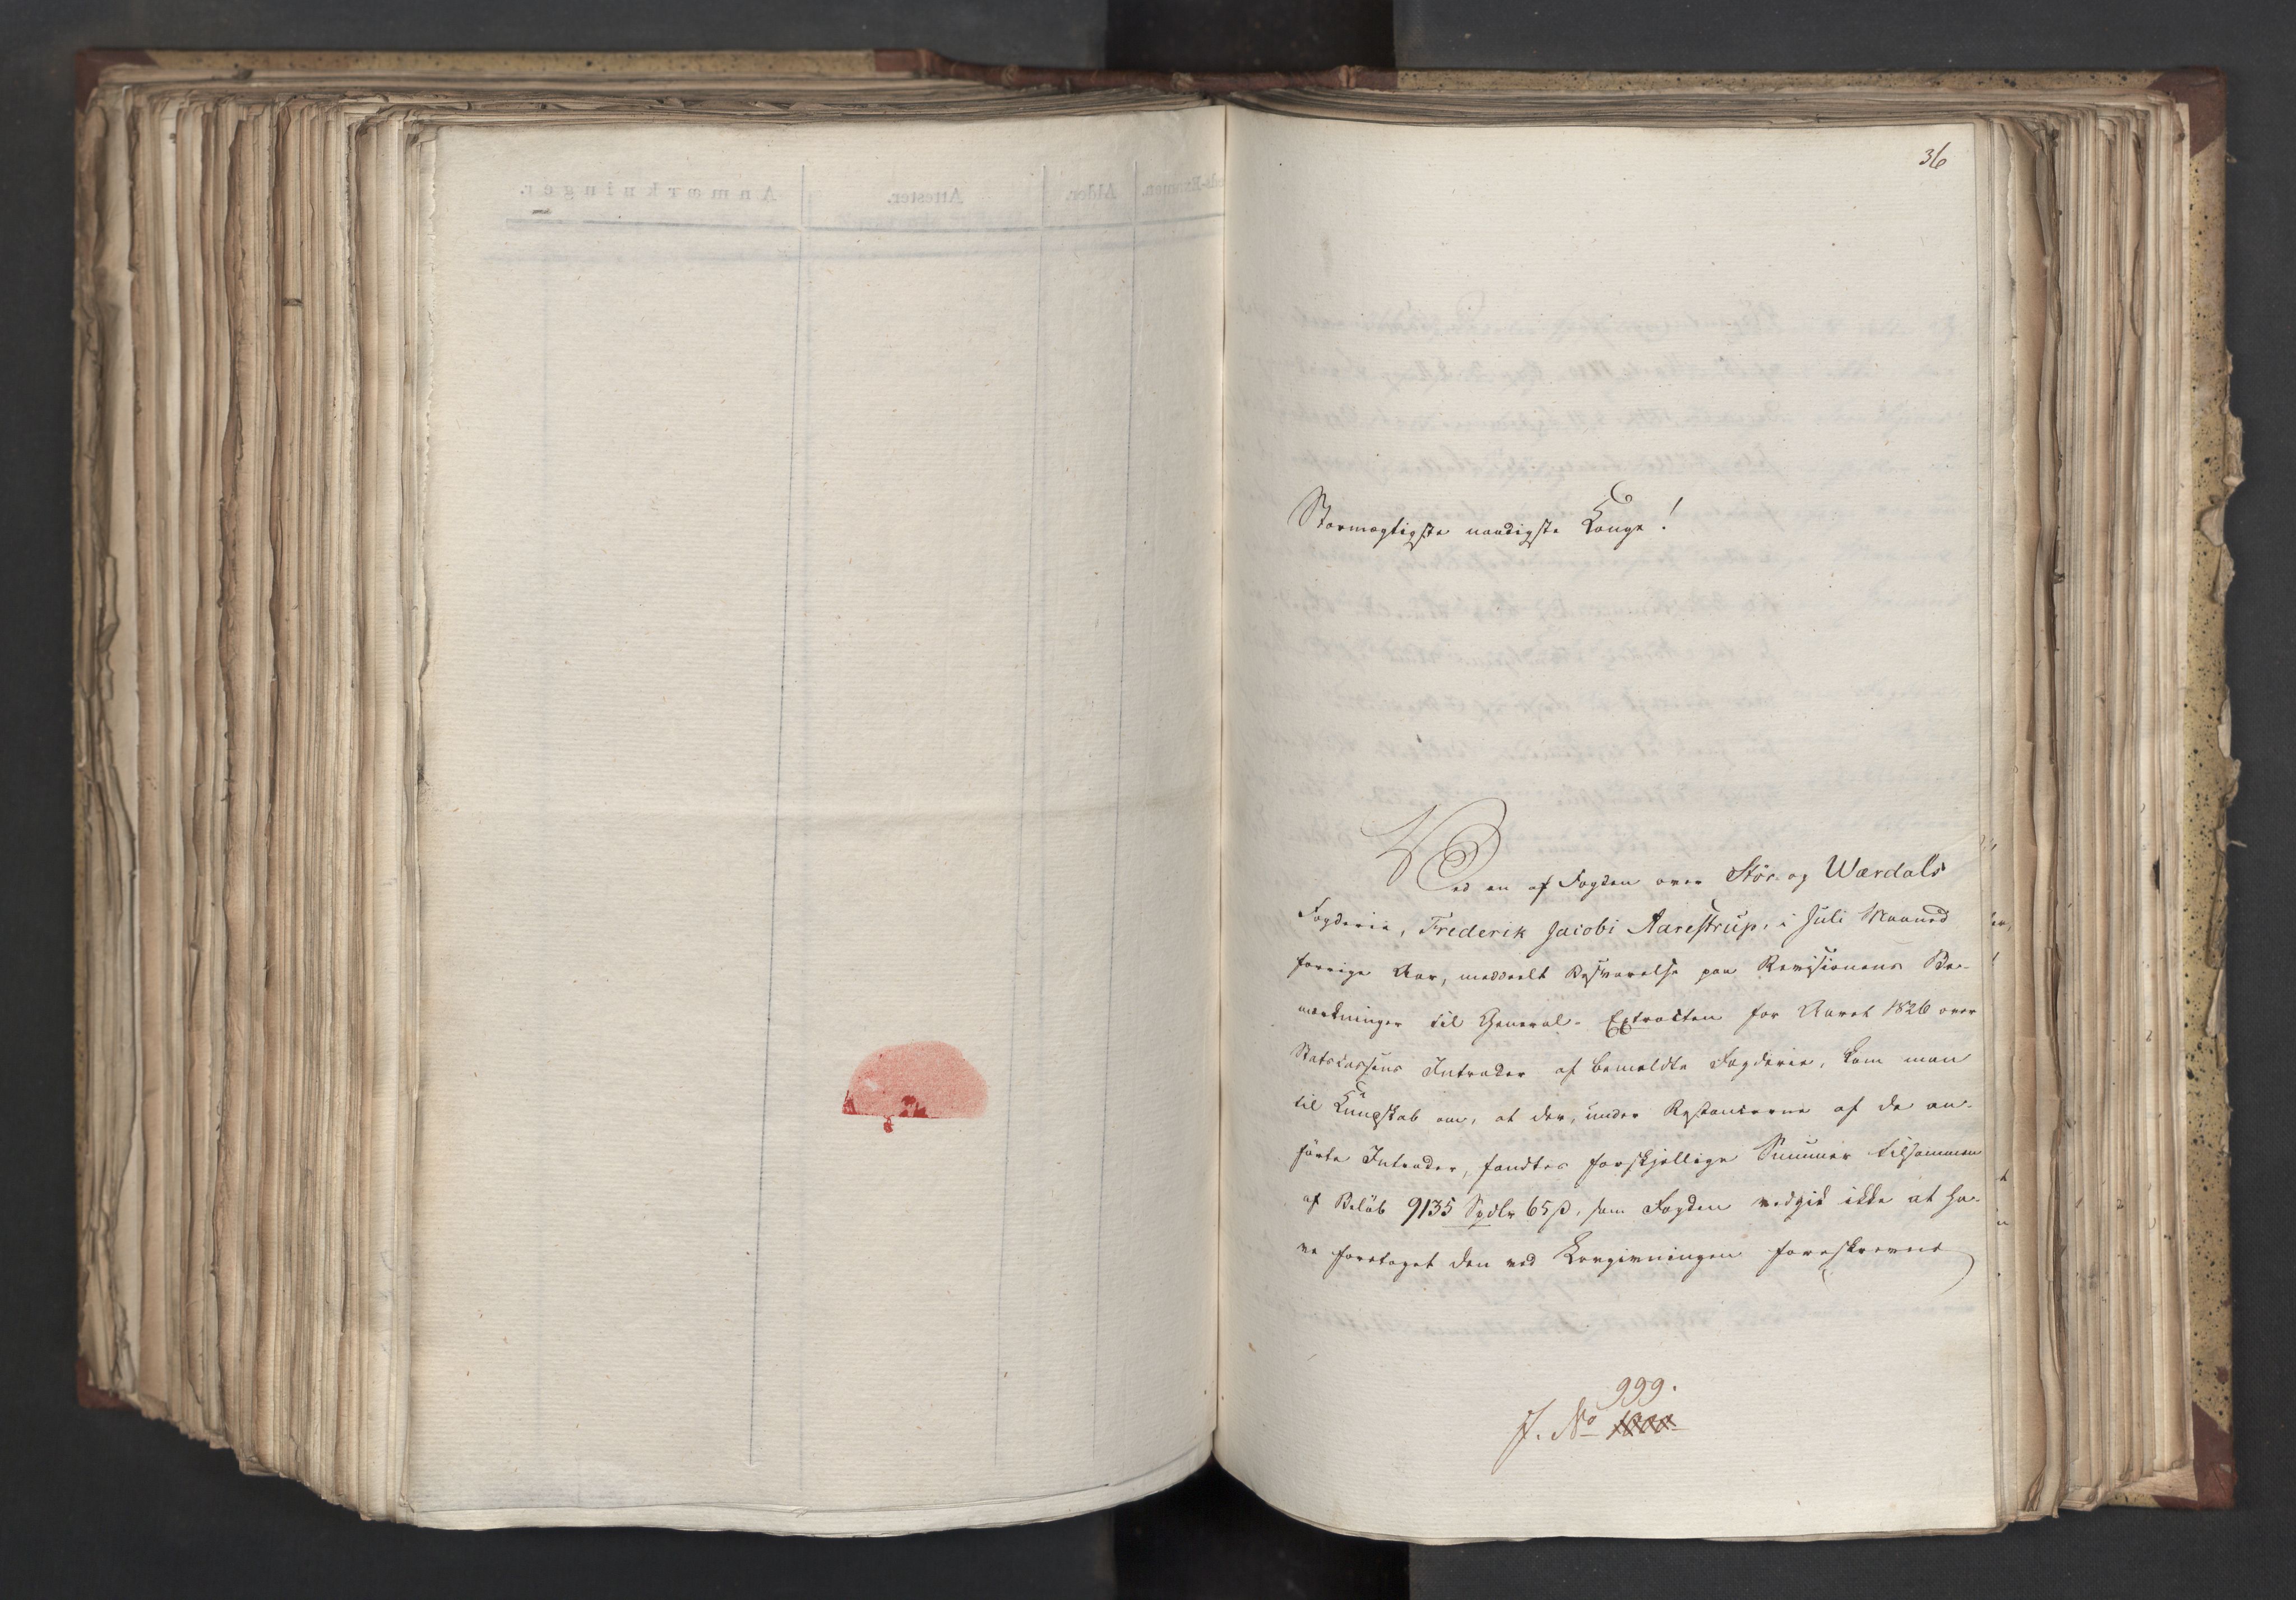 36
Stormægtigste naadigste Konge!
Ved en af Fogden over Stör- og Værdals
Fogderie, Frederik Jacobi Aarestrup, i Juli Maaned
forrige Aar, meddeelt Besvarelse paa Revisionens Be-
mærkninger til General-Extracten for Aaret 1826 over
Statscassens Intrader af bemeldte Fogderie, kom man
til Kundskab om, at der, under Restancerne af de an-
førte Intrader, fandtes forskjellige Summer tilsammen
af Beløb 9135 Spdlr 65 β, som Fogden vedgik ikke at ha-
ve foretaget den ved Lovgivningen foreskrevne
999.
J. No 1000